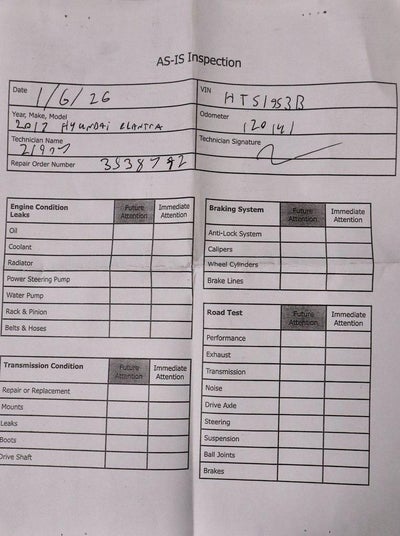 AS-IS Inspection
Date 1/6/26
VIN HTS1953B
Year, Make, Model
2017 HYUNDAI ELANTRA
Odometer
120141
Technician Name
Technician Signature
Repair Order Number 3538792
Engine Condition Future Immediate
Leaks Attention Attention
Oil
Coolant
Radiator
Power Steering Pump
Water Pump
Rack & Pinion
Belts & Hoses
Transmission Condition Future Immediate
Attention Attention
Repair or Replacement
Mounts
Leaks
Boots
Drive Shaft
Braking System Future Immediate
Attention Attention
Anti-Lock System
Calipers
Wheel Cylinders
Brake Lines
Road Test Future Immediate
Attention Attention
Performance
Exhaust
Transmission
Noise
Drive Axle
Steering
Suspension
Ball Joints
Brakes